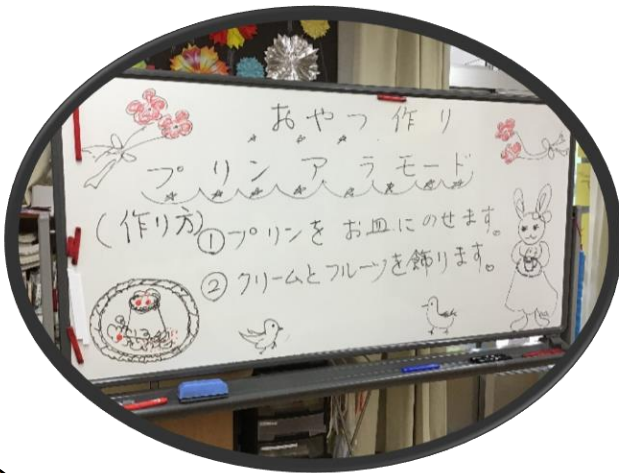 おやつ作り
プリンアラモード
(作り方)①プリンをお皿にのせます。
②クリームとフルーツを飾ります。